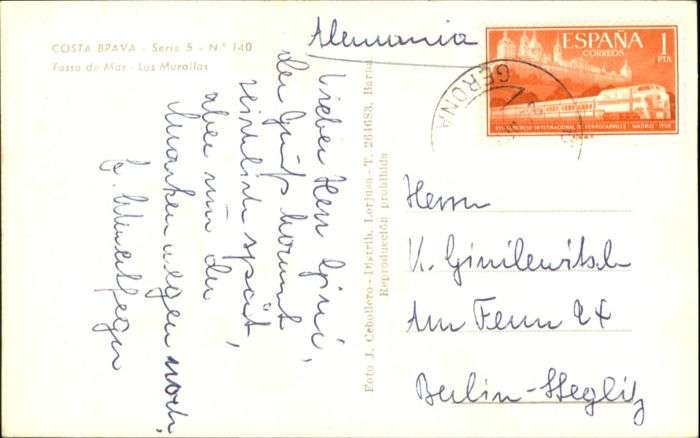 COSTA BRAVA - Serie 5 - N.º 140
Tossa de Mar - Las Murallas
Alemania
ESPAÑA
CORREOS
1
PTA
XVII CONGRESO INTERNACIONAL DE FERROCARRILES - MADRID - 1958
GERONA
Lieber Herr Gini,
der Gruß kommt
reichlich spät,
aber nun der
Marken wegen noch,
Foto J. Cebollero - Distrib. Lorjuan - T. 264683. Barna
Reproducción prohibida
Herrn
K. Ginilewitsch
Am Fenn 24
Berlin-Steglitz